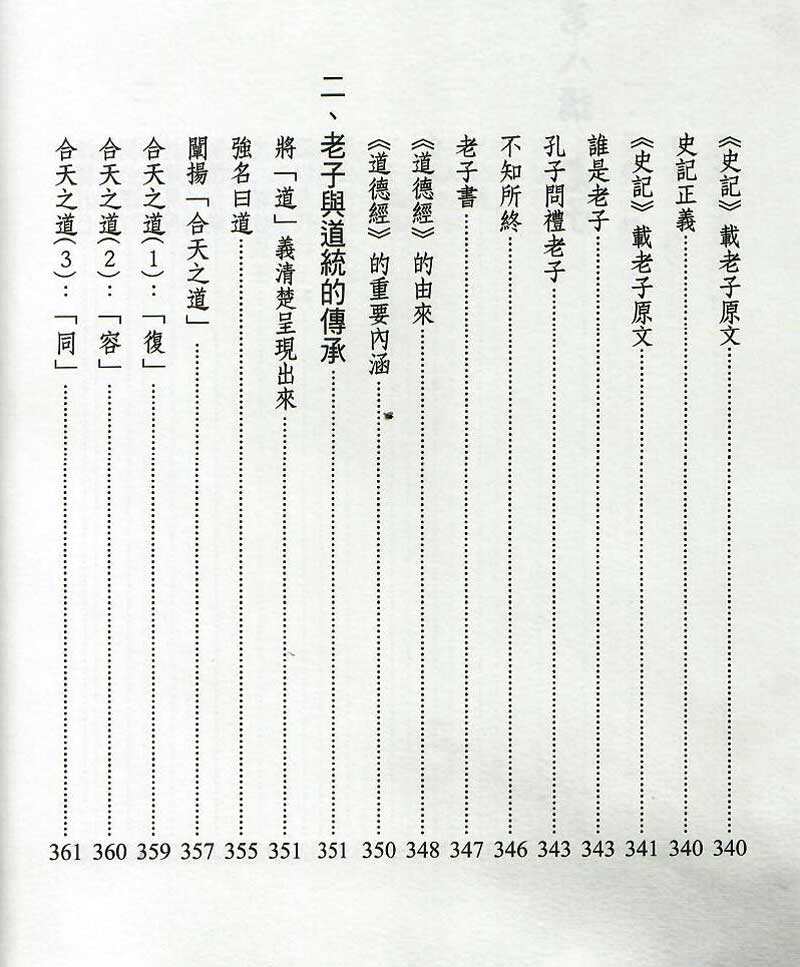 《史記》載老子原文……340
史記正義……340
《史記》載老子原文……341
誰是老子……343
孔子問禮老子……343
不知所終……346
老子書……347
《道德經》的由來……348
《道德經》的重要內涵……350
二、老子與道統的傳承……351
將「道」義清楚呈現出來……351
強名曰道……355
闡揚「合天之道」……357
合天之道(1)：「復」……359
合天之道(2)：「容」……360
合天之道(3)：「同」……361